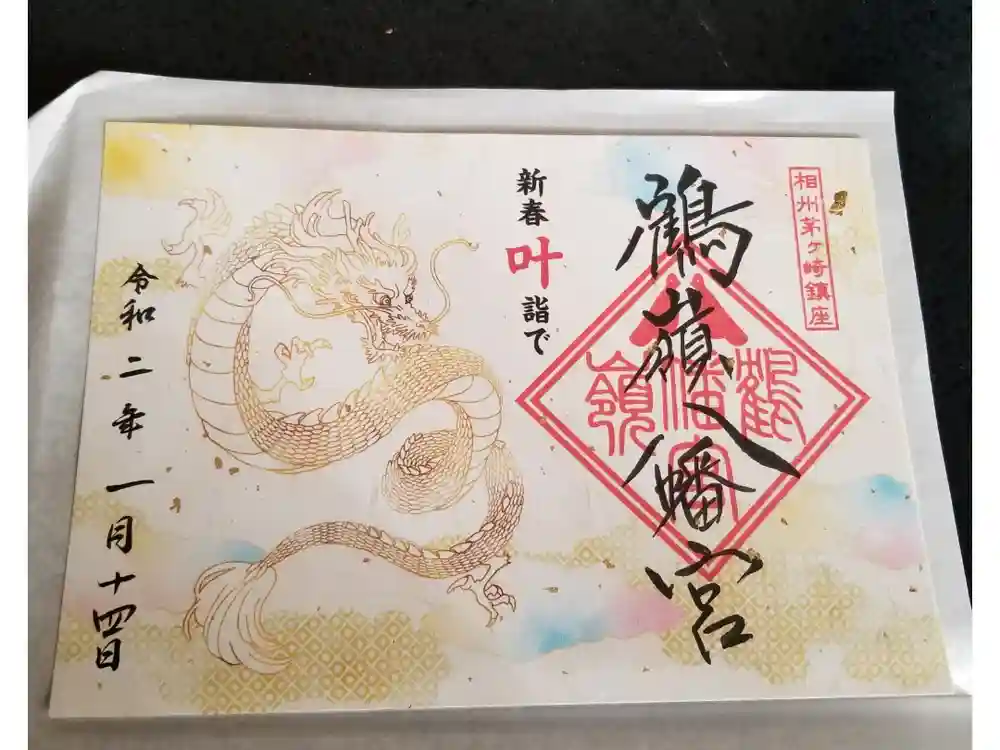 相州茅ヶ崎鎮座
鶴嶺八幡宮
鶴
八幡宮
嶺
新春叶詣で
令和二年一月十四日